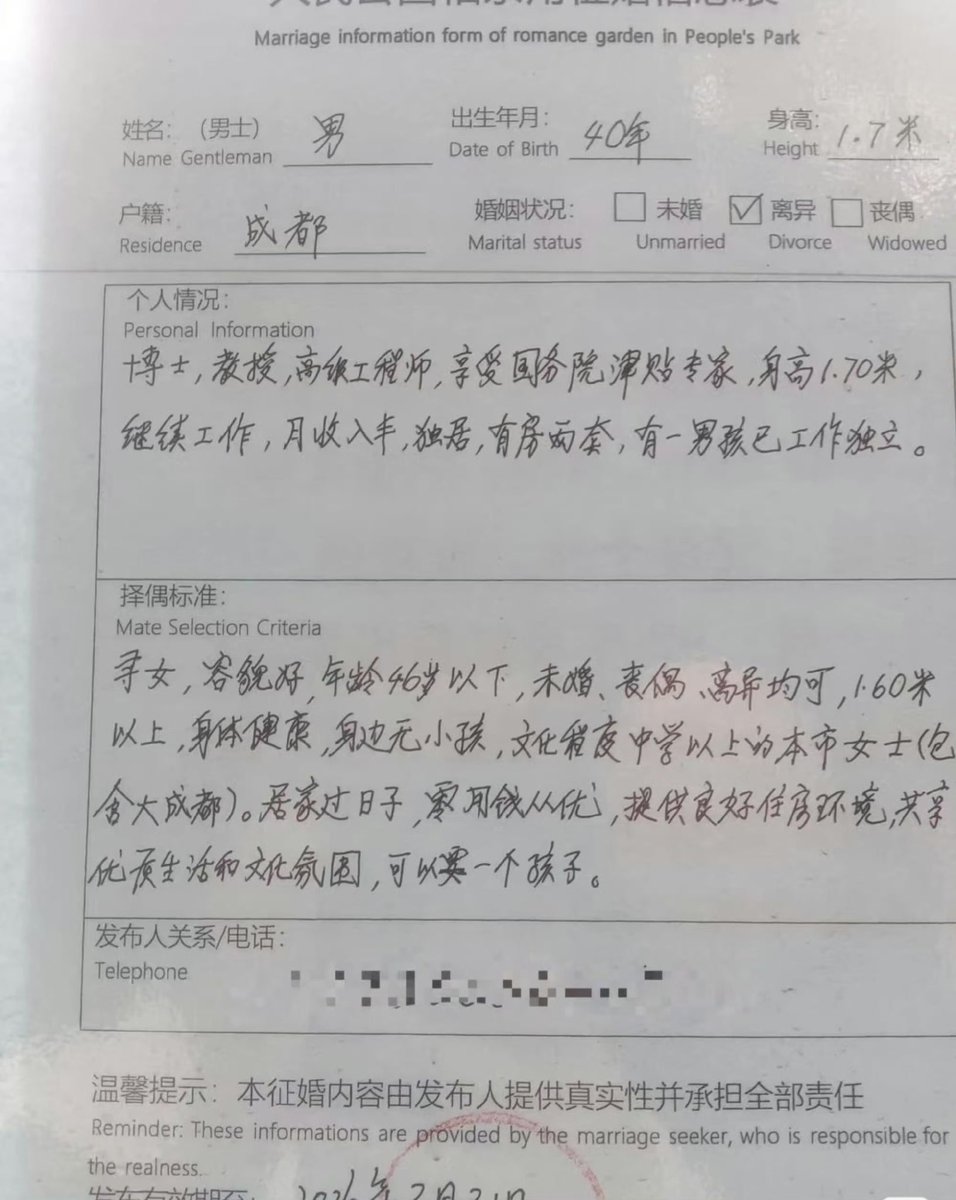 Marriage information form of romance garden in People's Park
姓名：（男士） 男 出生年月： 40年 身高： 1.7米
Name Gentleman Date of Birth Height
户籍： 成都 婚姻状况： 未婚 离异 丧偶
Residence Marital status Unmarried Divorce Widowed
个人情况：
Personal Information
博士，教授，高级工程师，享受国务院津贴专家，身高1.70米，
继续工作，月收入丰，独居，有房两套，有一男孩已工作独立。
择偶标准：
Mate Selection Criteria
寻女，容貌好，年龄46岁以下，未婚、丧偶、离异均可，1.60米
以上，身体健康，身边无小孩，文化程度中学以上的本市女士（包
含大成都）。居家过日子，零用钱从优，提供良好住房环境，共享
优质生活和文化氛围，可以要一个孩子。
发布人关系/电话：
Telephone
温馨提示：本征婚内容由发布人提供真实性并承担全部责任
Reminder: These informations are provided by the marriage seeker, who is responsible for
the realness.